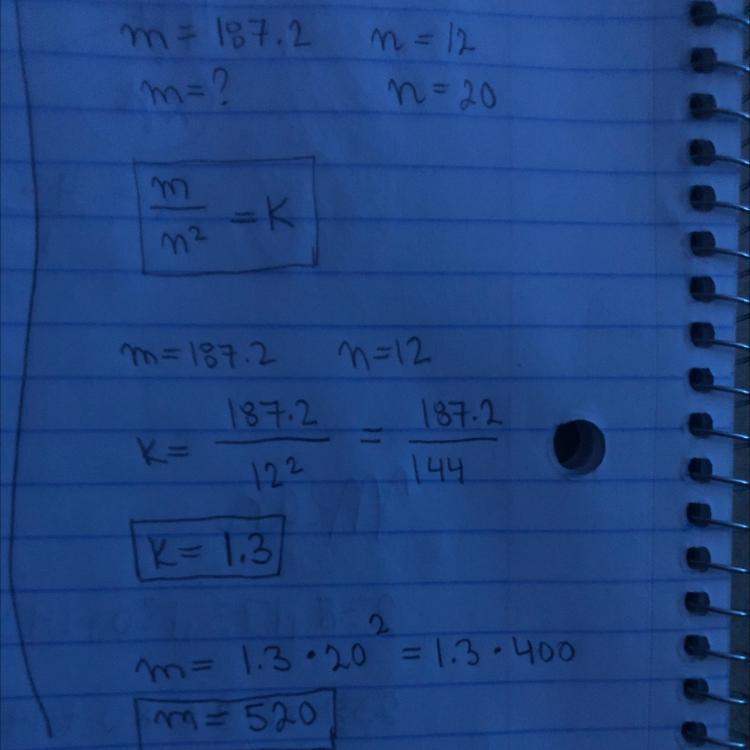 m = 187.2 n = 12
m = ? n = 20
m/n² = K
m = 187.2 n = 12
K = 187.2/12² = 187.2/144
K = 1.3
m = 1.3 · 20² = 1.3 · 400
m = 520